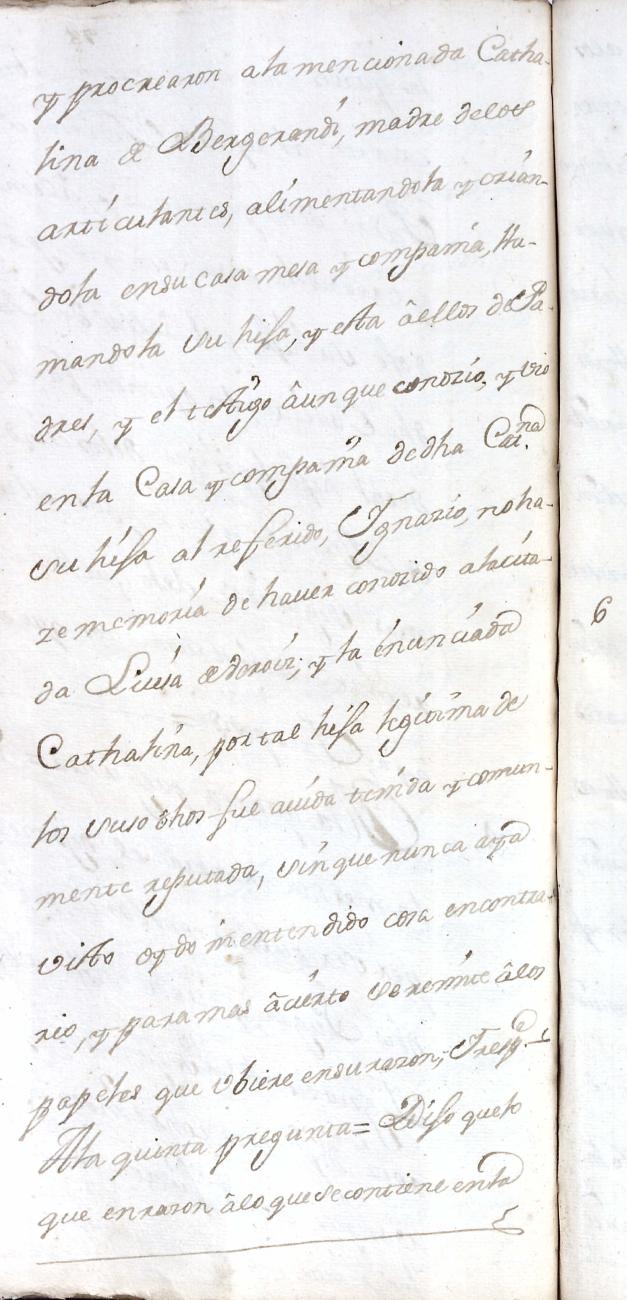 y procrearon ala mencionada Catha-
lina de Bergerandi, madre delos
articulantes, alimentandola y crian-
dola ensu casa mesa y compamia, lla-
mandola su hija, y esta âellos de Pa-
dres, y el testigo âunque conozio, y vio
enla Casa y compamia dedha Cat.na
su hija al referido, Ygnazio, noha-
ze memoria de haver conozido alacita-
da Luisa de deroiz; y la enunciada
Cathalina, por tal hija legitima de
los suso dhos fue auida tenida y comun-
mente reputada, sin que nunca aya
visto oydo ni entendido cosa encontra-
rio, y para mas acierto se remite âlos
papeles que vbiere ensu razon, y resp.de
Ala quinta pregunta = Dijo quelo
que enrazon âlo que se contiene enla
6